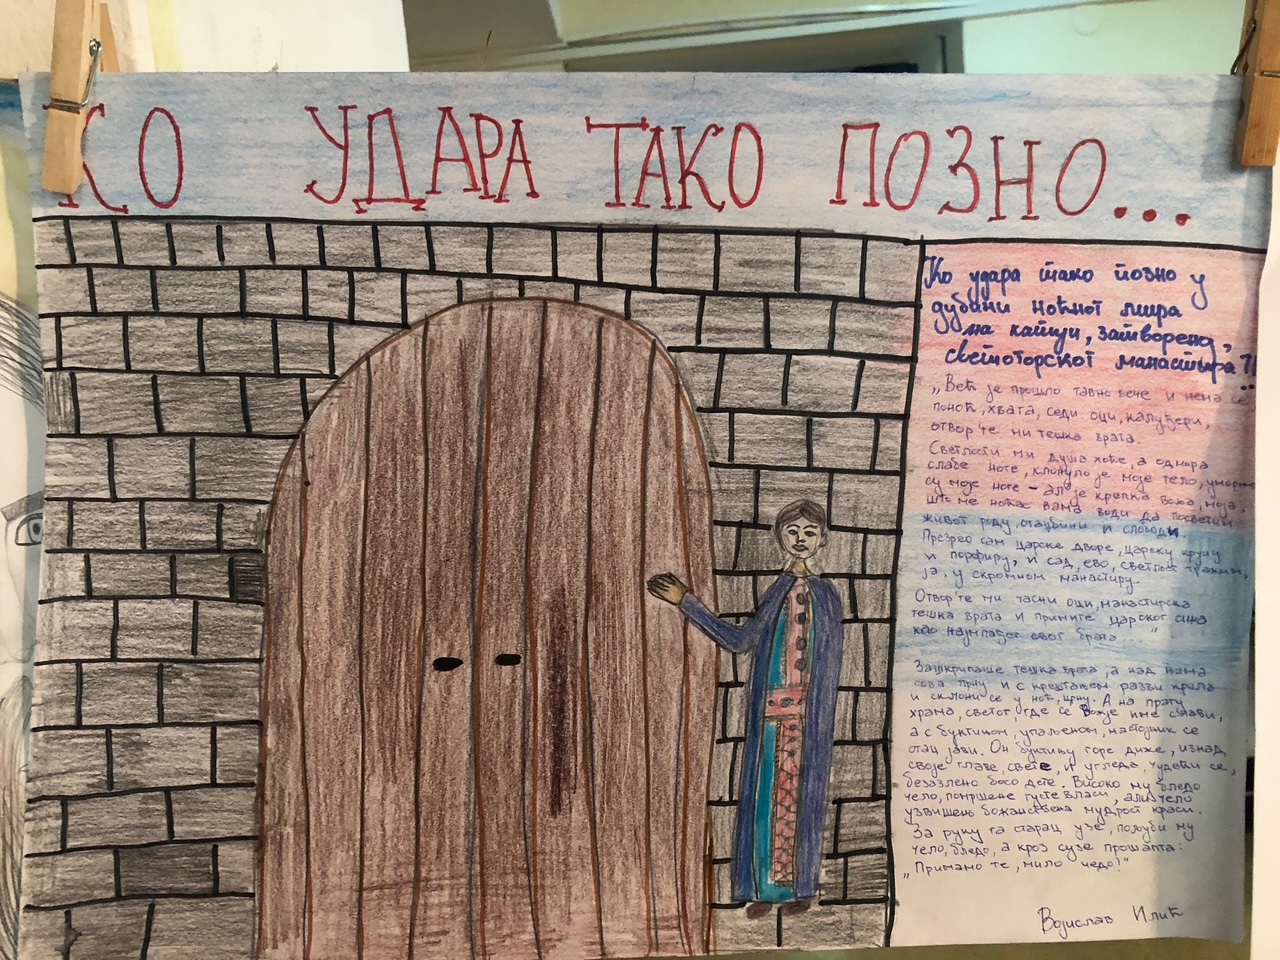 КО УДАРА ТАКО ПОЗНО...
Ко удара тако позно у
дубини ноћног мира
на капији, затвореној,
светогорског манастира?!
„Већ је прошло тавно вече и нема се
поноћ, хвата, седи оци, калуђери,
отвор'те ми тешка врата.
Светлости ми душа хоће, а одмора
слабе ноге, клонуло је моје тело, уморне
су моје ноге - ал' је крепка воља, моја,
што ме ноћас вама води да посветим
живот роду, отаџбини и слободи
Презрео сам царске дворе, царску круну
и порфиру, и сад, ево, светлост тражим,
ја, у скромном манастиру.
Отвор'те ми часни оци, манастирска
тешка врата и примите царског сина
као најмлађег свог брата...."
Зашкрипаше тешка врата, а над њима
сова прну и с крештањем разви крила
и склони се у ноћ, црну. А на прагу
храма, светог, где се Божје име слави,
а с буктињом, упаљеном, настојник се
отац јави. Он буктињу горе диже, изнад
своје главе, свете, и угледа, чудећи се,
безазлено босо дете. Високо му бледо
чело, помршене густе власи, али чело
узвишено божанствена мудрост краси.
За руку га старац узе, пољуби му
чело, бледо, а кроз сузе прошапта:
„Примамо те, мило чедо!"
Војислав Илић